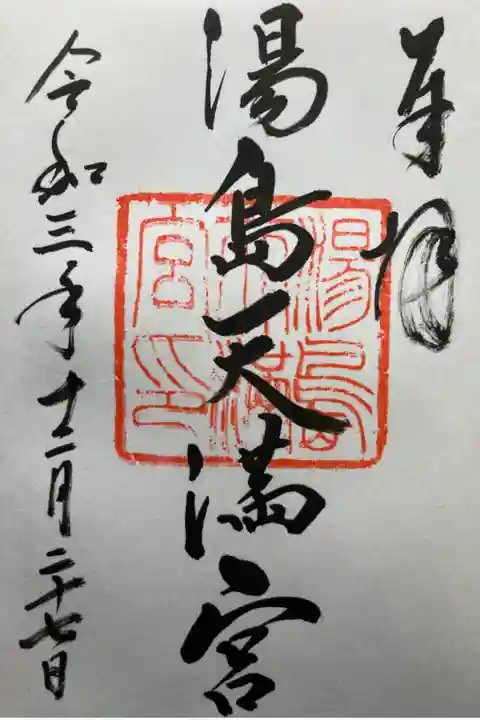 奉拝
湯島天満宮
湯島天満宮印
令和三年十二月二十七日